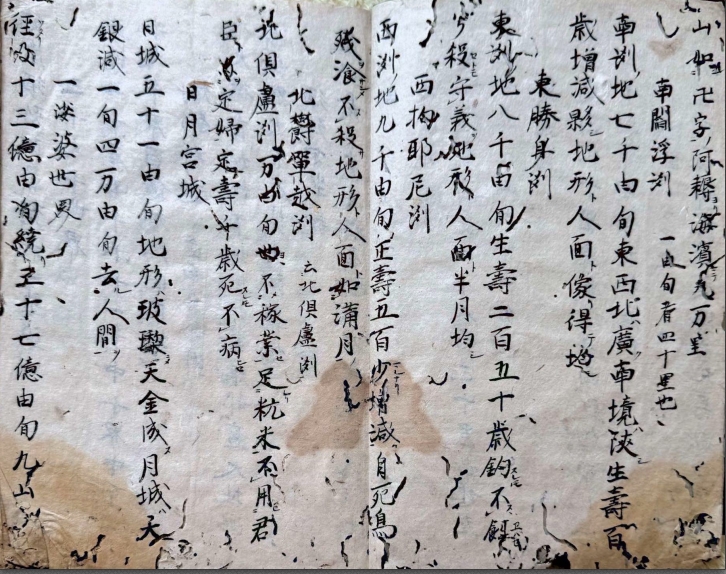 山如卍字阿耨海濱九万里
南閻浮洲 一由旬者四十里也
南洲地七千由旬東西北廣南境陜生壽百
歲增減影地形人面像得地
東勝身洲
東洲地八千由旬生壽二百五十歲鈎不餌
少殺守義地形人面半月均
西拘耶尼洲
西洲地九千由旬正壽五百少增減自死鳥
殘飡不殺地形人面如滿月
北欝單越洲 云北俱盧洲
北俱盧洲一万由旬 不稼業足粳米不用君
臣 定婦定壽千歲死不病
日月宮城
日城五十一由旬地形玻瓈天金成月城天
銀減一旬四万由旬去人間
一娑婆世界
徑 十三億由旬繞五十七億由旬九山